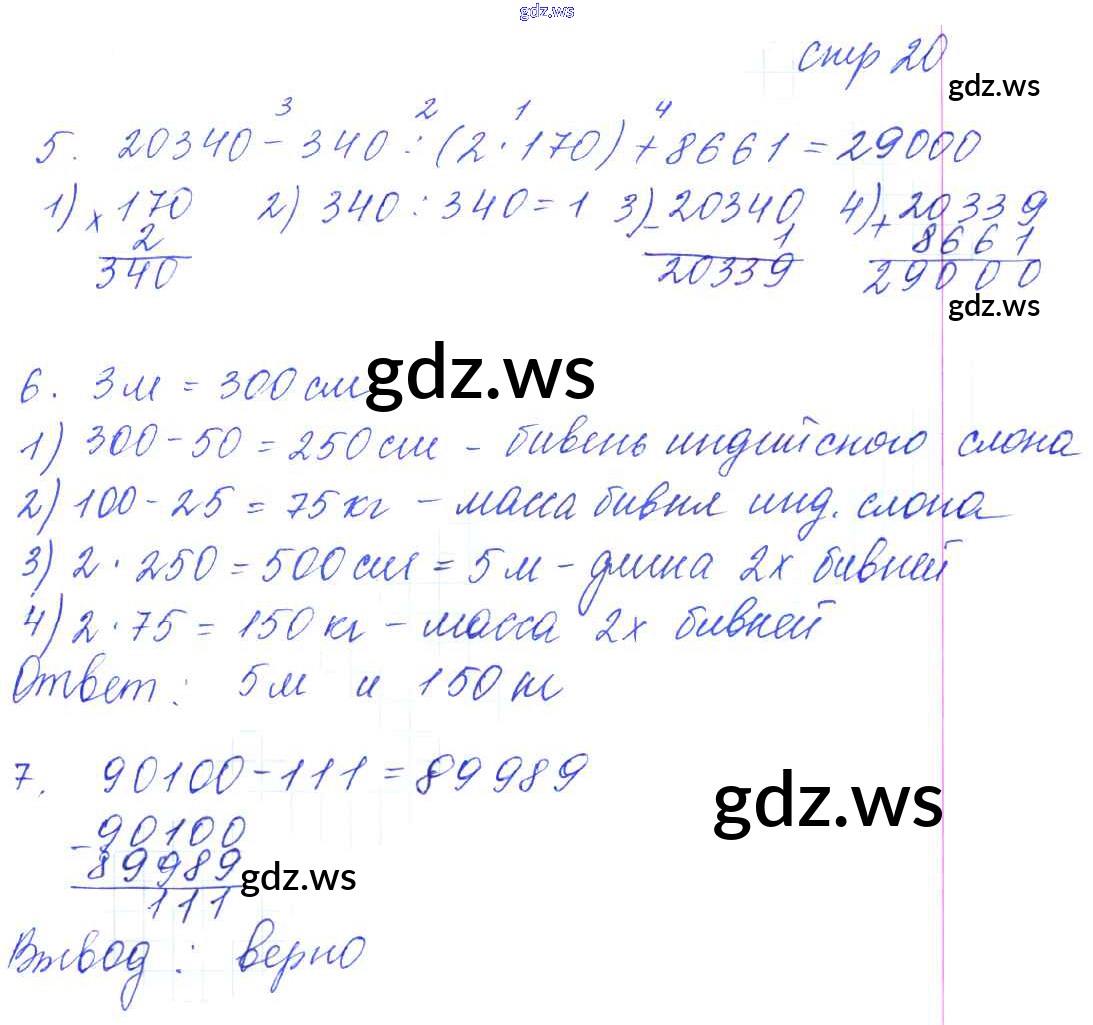 gdz.ws
стр 20
gdz.ws
3 2 1 4
5. 20340 - 340 : (2 · 170) + 8661 = 29000
1) × 170 2) 340 : 340 = 1 3) - 20340 4) + 20339
2 1 8661
340 20339 29000
gdz.ws
6. 3 м = 300 см
gdz.ws
1) 300 - 50 = 250 см - бивень индийского слона
2) 100 - 25 = 75 кг - масса бивня инд. слона
3) 2 · 250 = 500 см = 5 м - длина 2х бивней
4) 2 · 75 = 150 кг - масса 2х бивней
Ответ: 5 м и 150 кг
7. 90100 - 111 = 89989
gdz.ws
- 90100
89989
gdz.ws
111
Вывод: верно